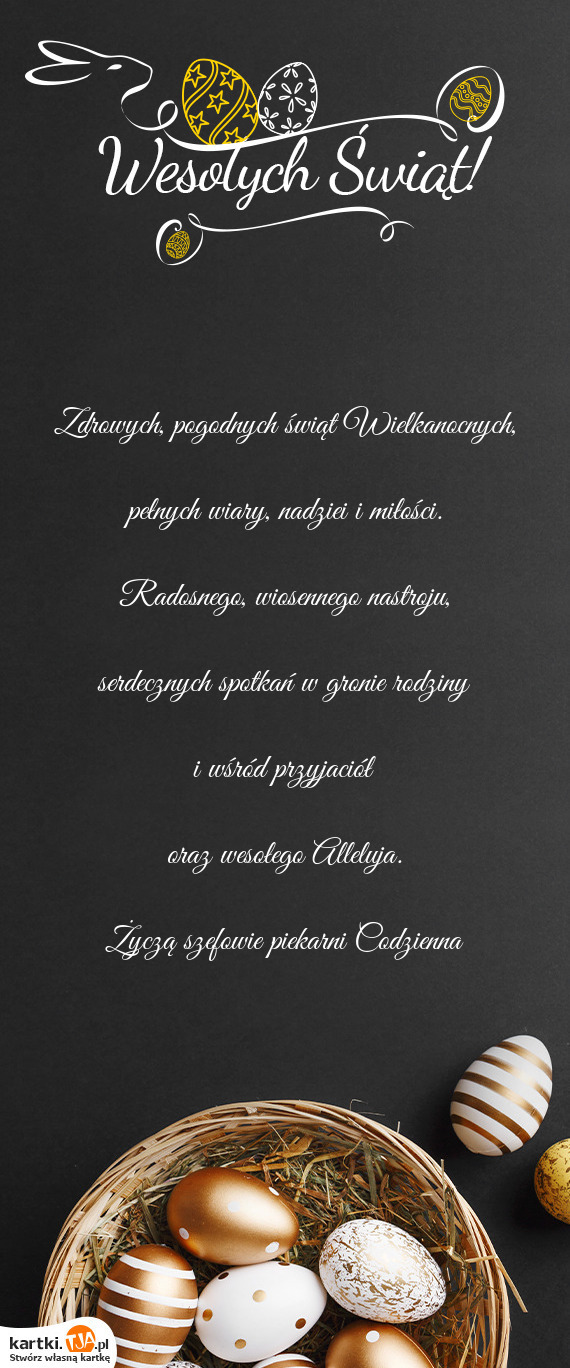 Wesołych Świąt!
Zdrowych, pogodnych świąt Wielkanocnych,
pełnych wiary, nadziei i miłości.
Radosnego, wiosennego nastroju,
serdecznych spotkań w gronie rodziny
i wśród przyjaciół
oraz wesołego Alleluja.
Życzą szefowie piekarni Codzienna
kartki.TJA.pl
Stwórz własną kartkę